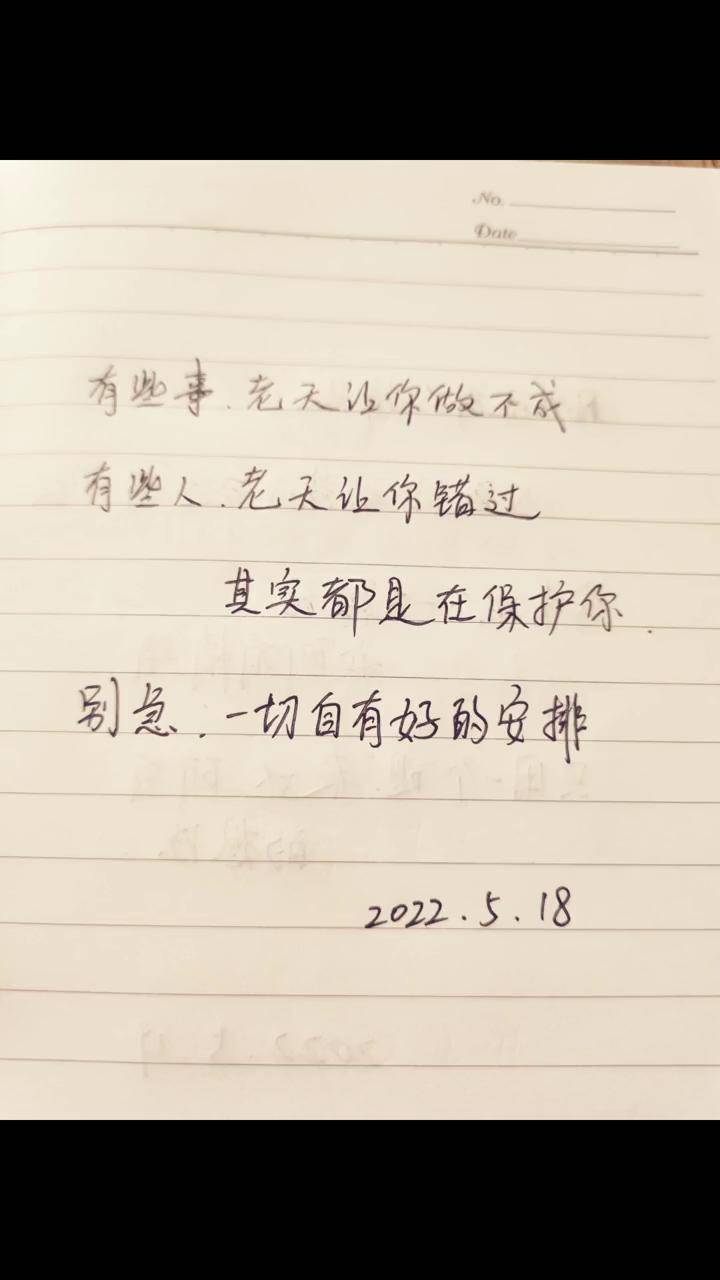 No.
Date
有些事.老天让你做不成
有些人.老天让你错过
其实都是在保护你.
别急.一切自有好的安排
2022.5.18